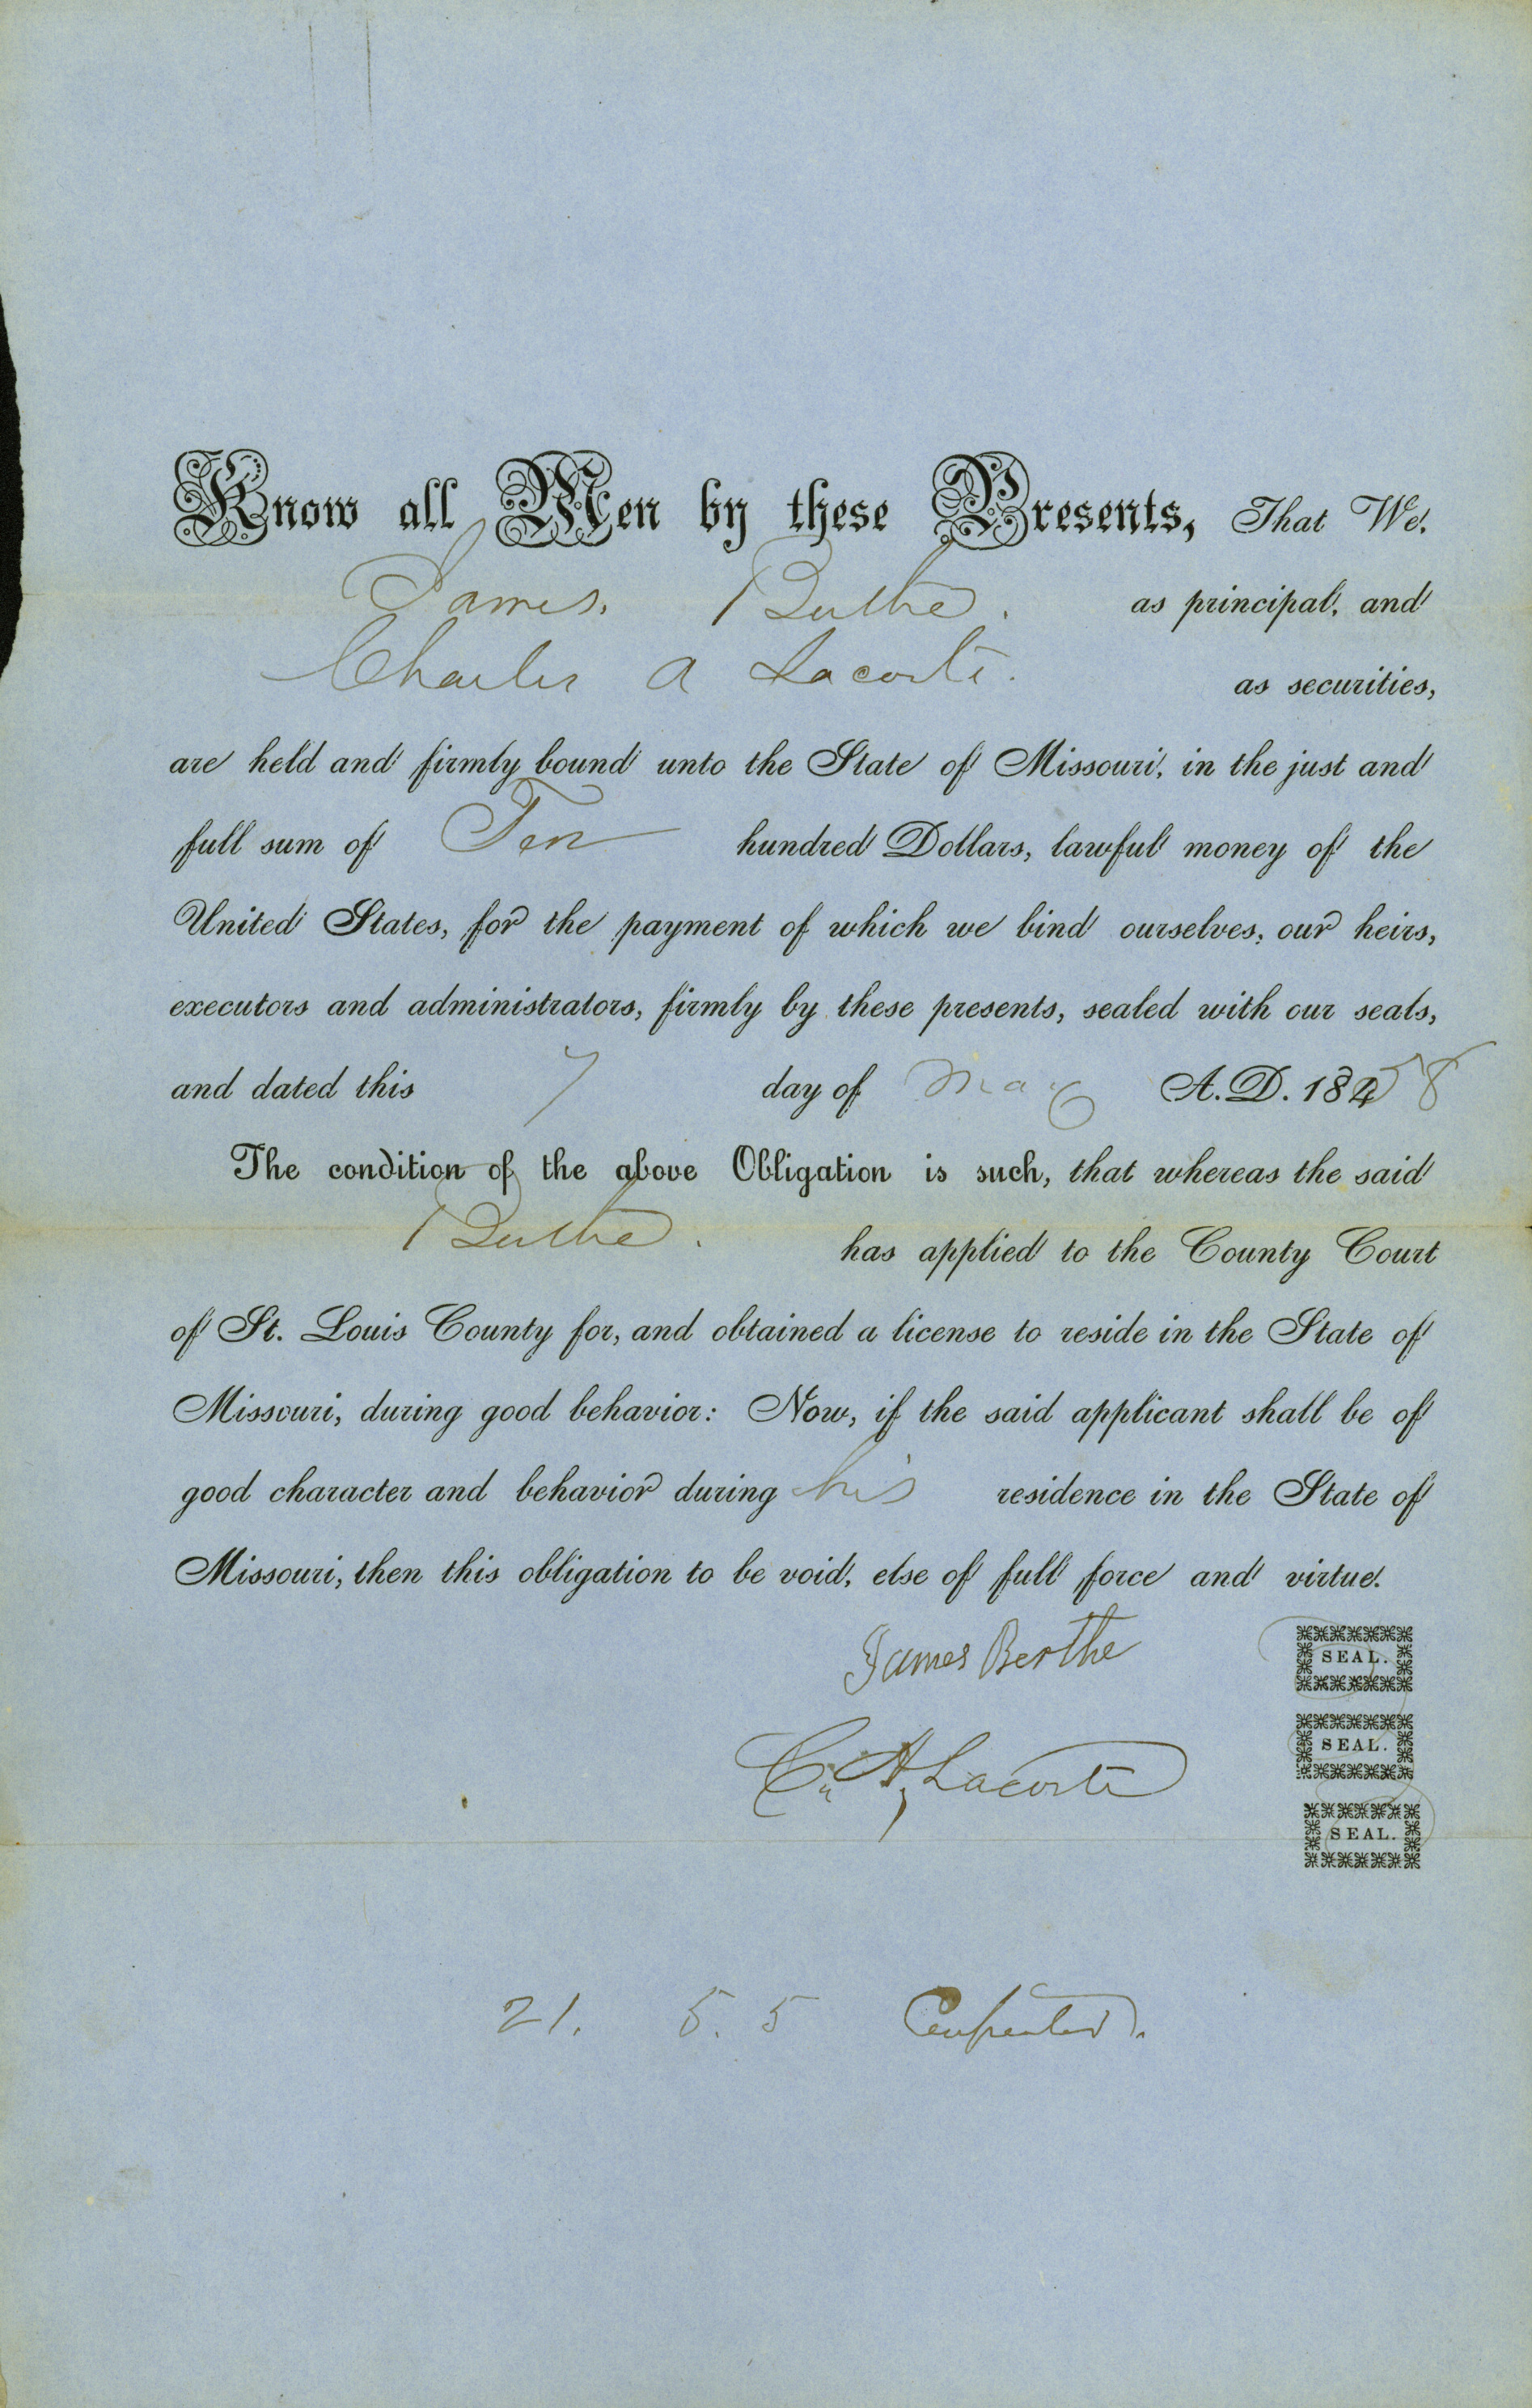 Know all Men by these Presents, That We,
James. Berthe. as principal, and
Charles A Lacorte. as securities,
are held and firmly bound unto the State of Missouri, in the just and
full sum of Ten hundred Dollars, lawful money of the
United States, for the payment of which we bind ourselves, our heirs,
executors and administrators, firmly by these presents, sealed with our seals,
and dated this 7 day of May A. D. 18458
The condition of the above Obligation is such, that whereas the said
Berthe. has applied to the County Court
of St. Louis County for, and obtained a license to reside in the State of
Missouri, during good behavior: Now, if the said applicant shall be of
good character and behavior during his residence in the State of
Missouri, then this obligation to be void, else of full force and virtue.
James Berthe SEAL.
C. A. Lacorte SEAL.
SEAL.
21. 5. 5 Carpenter.